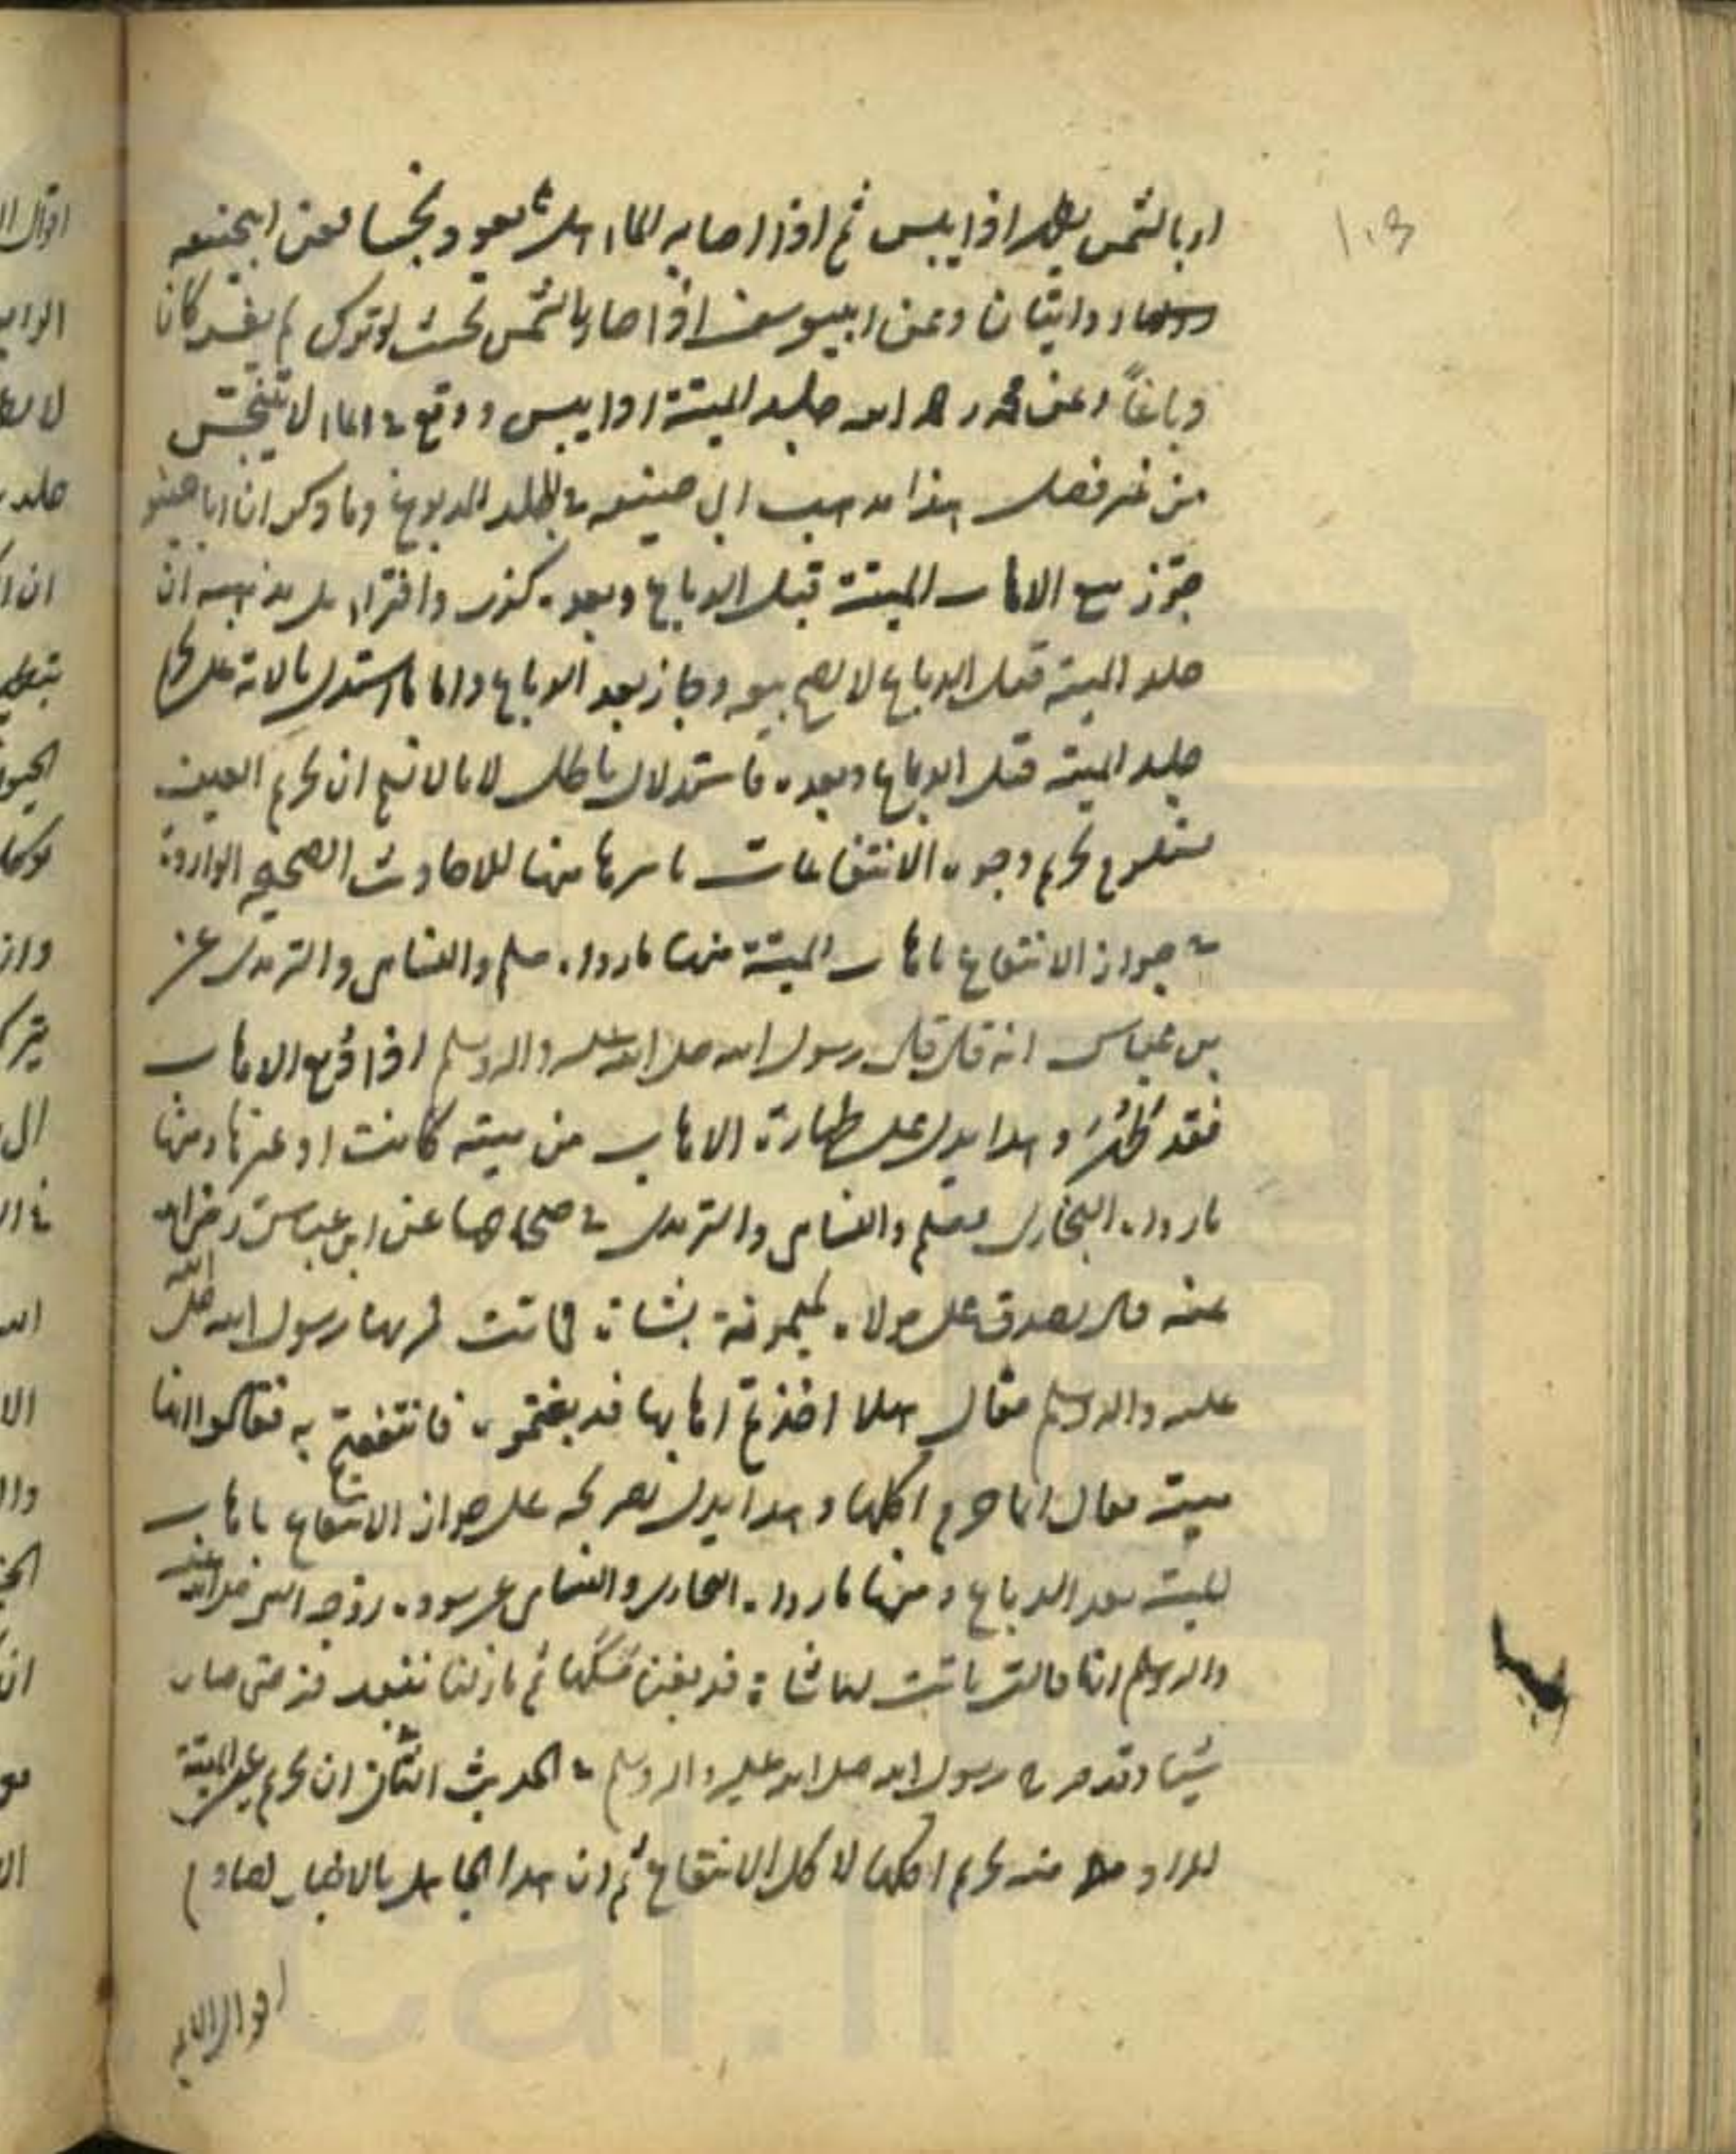 ١٠٣
او بالشمس يطهر اذا يبس ثم اذا اصابه الماء هل يعود نجسا فعن ابيحنيفه
روايتان وعن ابييوسف اذا صار بالشمس بحيث لو ترك لم يفسد كان
دباغاً وعن محمد رحمه الله جلد الميتة اذا يبس ووقع في الماء لا يتنجس
من غير فصل هذا مذهب ابي حنيفه في الجلد المدبوغ وما ذكر ان ابا حنيفه
جوّز بيع الاهاب الميتة قبل الدباغ وبعده كذب وافتراء بل مذهبه ان
جلد الميتة قبل الدباغ لا يصح بيعه وجاز بعد الدباغ واما ما استدل بالاية على تحريم
جلد الميتة قبل الدباغ وبعده فاستدلال باطل لانا لا نسلم ان تحريم العين
يستلزم تحريم وجوه الانتفاعات باسرها منها للاحاديث الصحيحه الواردة
في جواز الانتفاع باهاب الميتة منها ما رواه مسلم والنسايي والترمدي عن
بن عباس انه قال قال رسول الله صلى الله عليه واله وسلم اذا دُبغ الاهاب
فقد طَهُرَ وهذا يدل على طهارة الاهاب من ميتة كانت او غيرها ومنها
ما رواه البخاري ومسلم والنسايي والترمدي في صحاحها عن ابن عباس رضي الله
عنه قال تصدق على مولاة لميمونة بشاة فماتت فمر بها رسول الله صلى الله
عليه واله وسلم فقال هلا اخذتم اهابها فدبغتموه فانتفعتم به فقالوا انها
ميتة فقال انما حرم اكلها وهذا يدل بصريحه على جواز الانتفاع باهاب
الميتة بعد الدباغ ومنها ما رواه البخاري والنسايي عن سودة زوجه النبي صلى الله عليه
واله وسلم انها قالت ماتت لنا شاة فدبغنا مسكها ثم ما زلنا ننبذ فيه حتى صار
شنا وقد صرح رسول الله صلى الله عليه واله وسلم في الحديث الثاني ان تحريم عين الميتة
المراد منه تحريم اكلها لا كل الانتفاع ثم ان هذا الجاهل بالاخبار لما